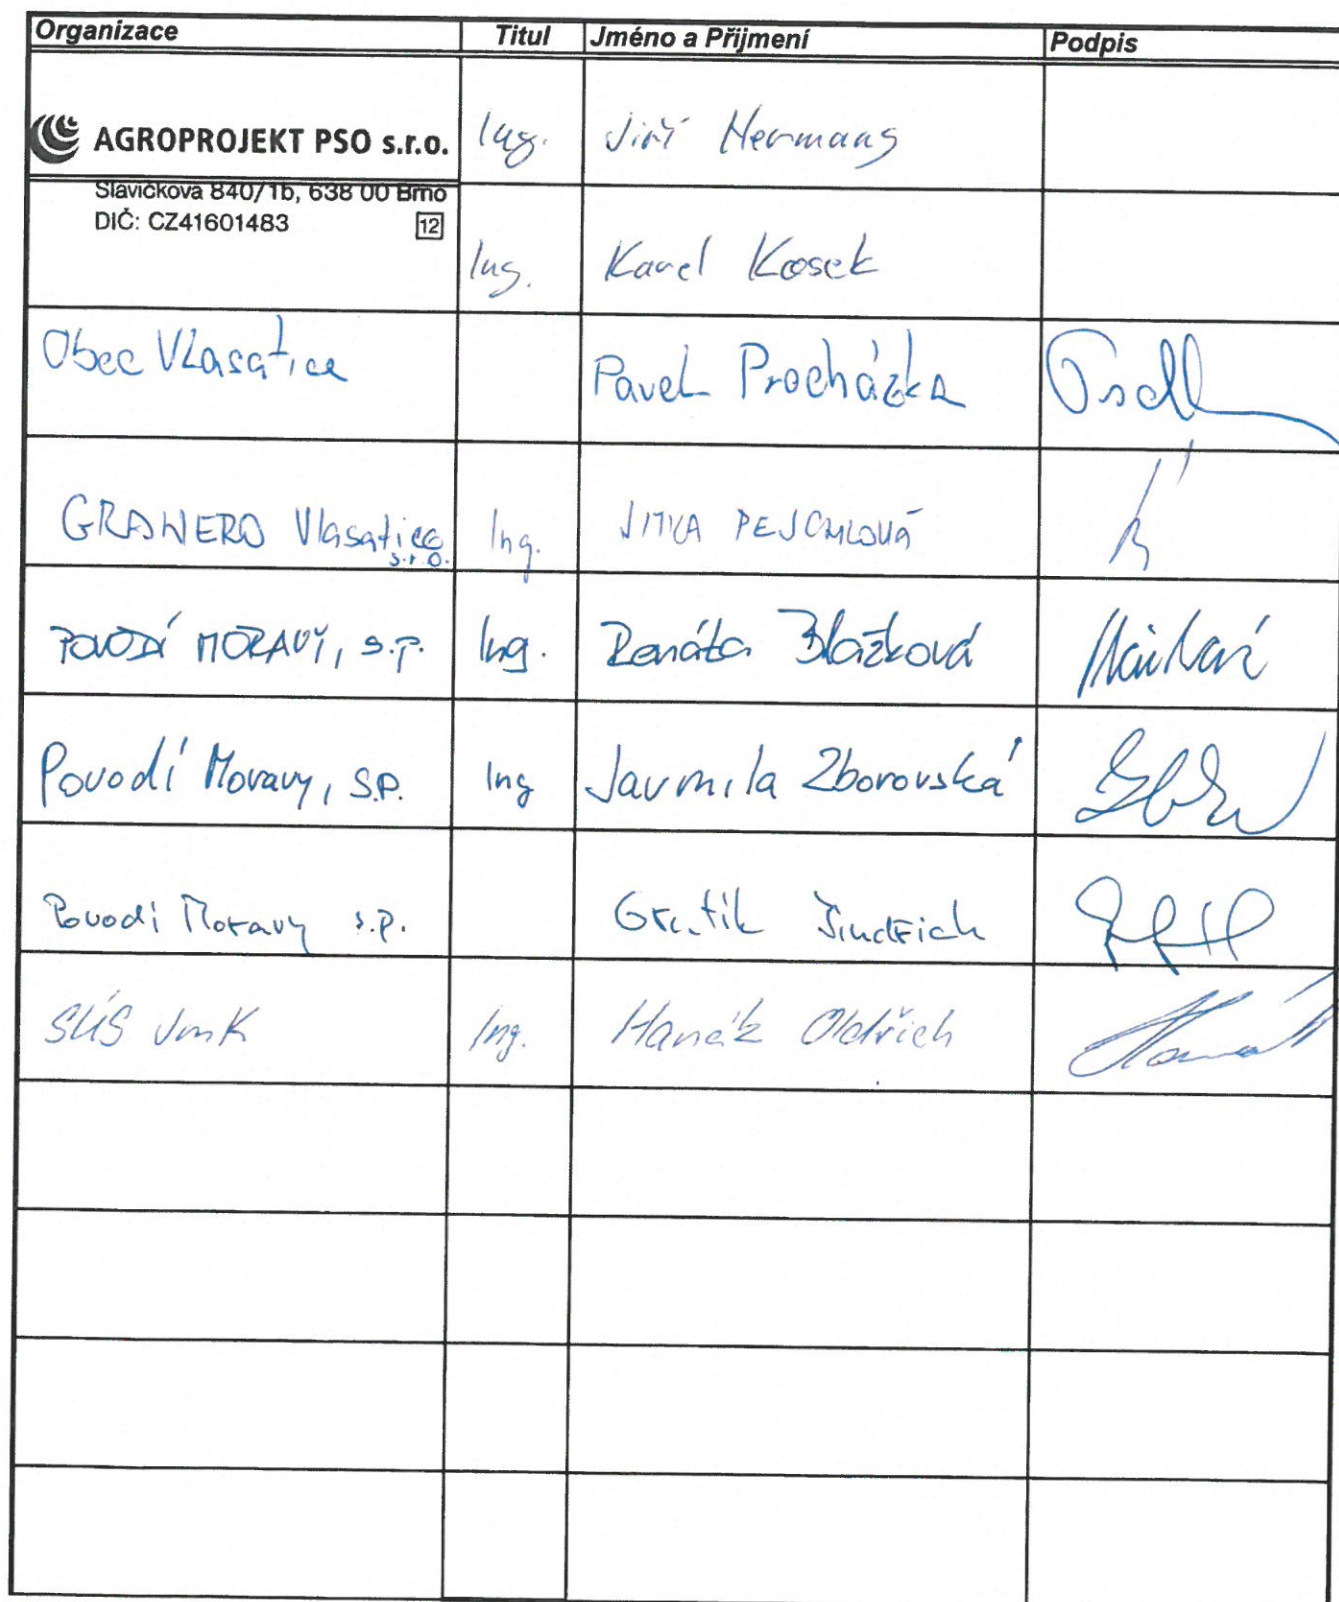 Organizace Titul Jméno a Příjmení Podpis
AGROPROJEKT PSO s.r.o. Ing. Jiří Hermany
Slavíčkova 840/1b, 638 00 Brno
DIČ: CZ41601483 12
Ing. Karel Kosek
Obec Vlasatice Pavel Procházka
GRANERO Vlasatice s.r.o. Ing. JITKA
POVODÍ MORAVY, s.p. Ing. Renáta Blažková
Povodí Moravy, s.p. Ing Jarmila Zborovská
Povodí Moravy s.p. Jindřich
SÚS JmK Ing. Hanák Oldřich